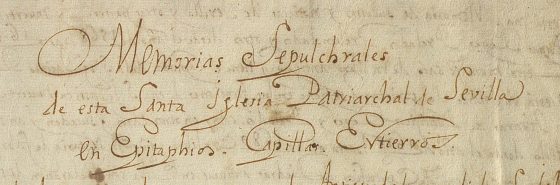 Memorias Sepulchrales
de esta Santa Iglesia Patriarchal de Sevilla
en Epitaphios. Capillas. Entierros.